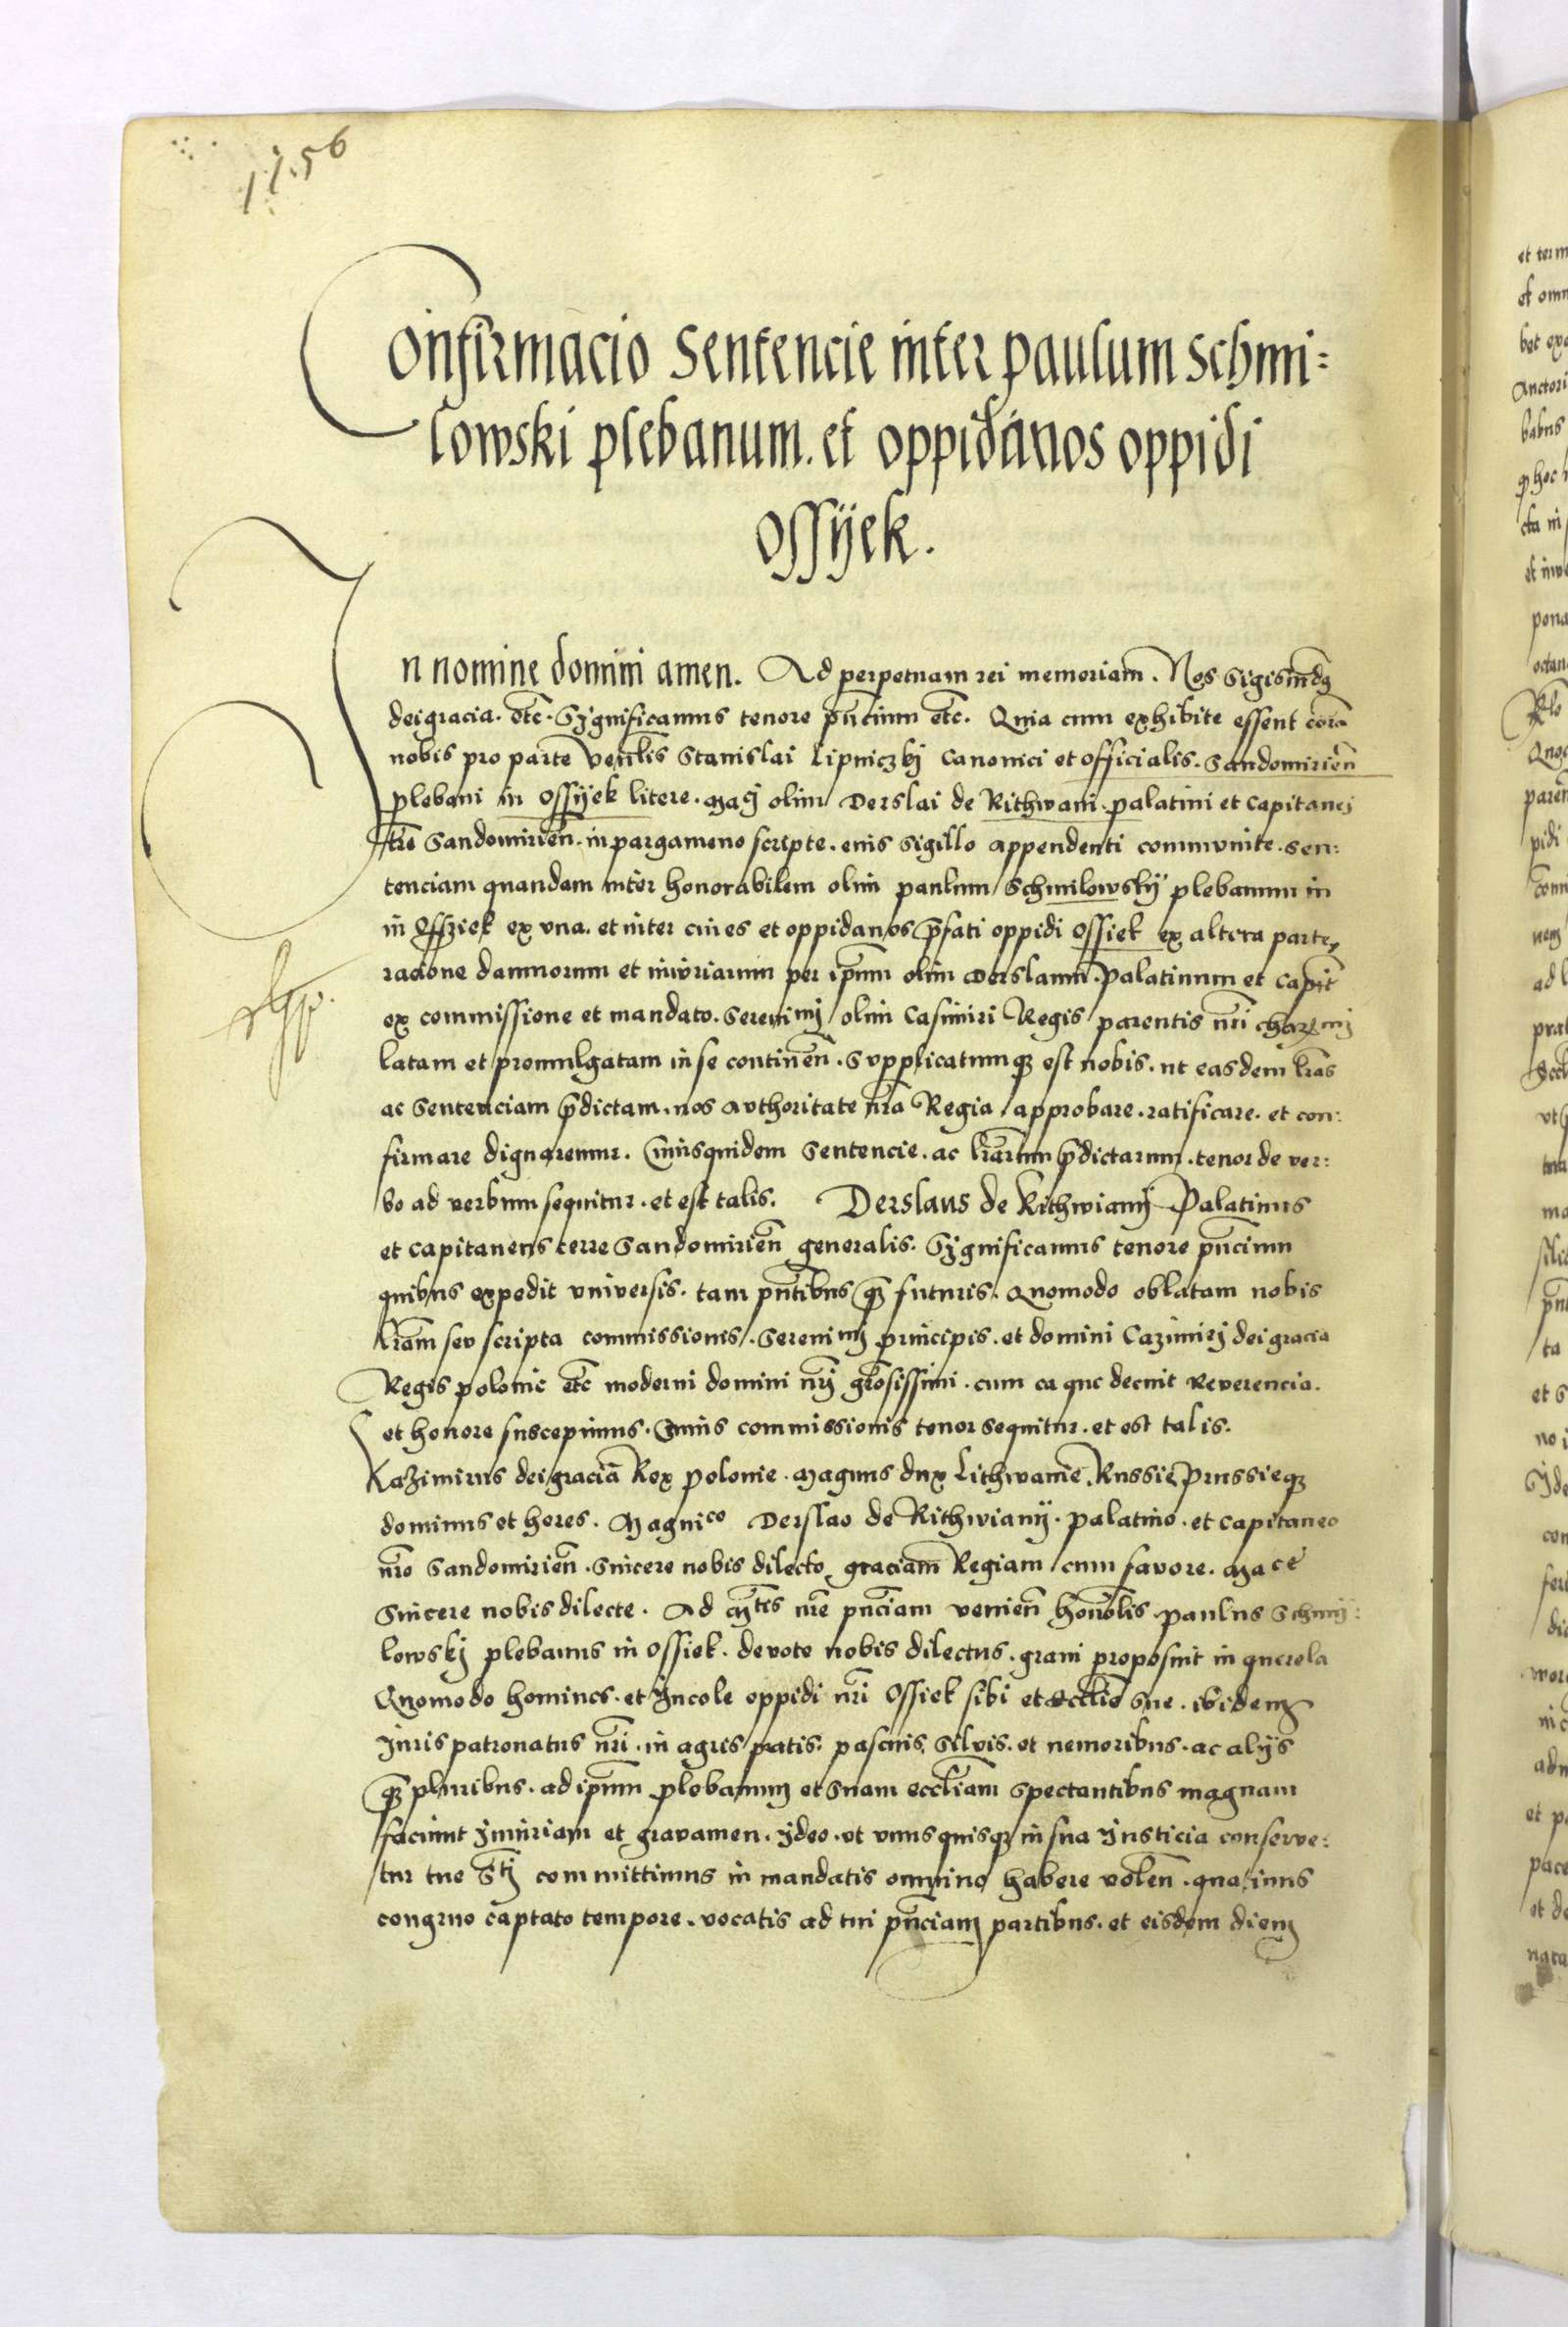 1756
Confirmacio Sentencie inter paulum Schmi:
lowski plebanum. et oppidanos oppidi
Ossÿek.
In nomine domini amen. Ad perpetuam rei memoriam. Nos Sigism̄dꝯ
dei gracia. etc̄. Significamus tenore pn̄tium etc̄. Quia cum exhibite essent corā
nobis pro parte Veneᷣlis Stanislai Lipniczkj Canonici et officialis. Sandomirien̄
plebani in Ossÿek litere. Maci olim Derslai de Rithwani. palatini et Capitanej
tr̄e Sandomirien̄. in pargameno scripte. eius sigillo appendenti communite. Sen:
tenciam quandam inter honorabilem olim paulum Schmilowskÿ plebanum in
in Ossziek ex vna. et inter ciues et oppidanos p̄fati oppidi Ossiek ex altera parte,
racione damnorum et iniuriarum per ip̄um olim Derslaum. Palatinum et Capit̄
ex commissione et mandato. Serenimj olim Casimiri Regis parentis nr̄i charimj
latam et promulgatam in se continen̄. Supplicatumqꝫ est nobis. ut easdem lr̄as
ac Sentenciam p̄dictam. nos authoritate nr̄a Regia approbare. ratificare. et con:
firmare dignaremur. Cuiusquidem Sentencie. ac lr̄arum p̄dictarum. tenor de ver:
bo ad verbum sequitur. et est talis. Derslaus de Rithwianij Palatinus
et capitaneus terre Sandomirien̄ generalis. Significamus tenore pn̄cium
quibus expedit vniversis. tam pn̄tibus qꝫ futuris. Quomodo oblatam nobis
lr̄am seu scripta commissionis. Serenimj principis. et domini Cazimirj dei gracia
Regis polonie etc̄ moderni domini nr̄j gr̄osissimi. cum ea que decuit Reverencia.
et honore suscepimus. Cuius commissionis tenor sequitur. et est talis.
Kazimirus dei gracia Rex polonie. Magnus dux Lithwanie. Russie, Prussieqꝫ
dominus et heres. Magnico Derslao de Rithwianÿ. palatino. et capitaneo
nr̄o Sandomirien̄. Sincere nobis dilecto graciam Regiam cum favore. Mace
Sincere nobis dilecte. Ad Mt̄is nr̄e pn̄ciam venien̄ honor̄blis paulus Schmij:
lowskj plebanus in Ossiek. devote nobis dilectus. graui proposuit in querela
Quomodo homines. et Incole oppidi nr̄i Ossiek sibi et Eccl̄ie Sue. ibidem
Juris patronatus nr̄i. in agris pratis. pascuis, Silvis. et nemoribus. ac alijs
qꝫ pluribus. ad ip̄um plebanum et Suam eccl̄iam Spectantibus magnam
faciunt Iniuriam et gravamen. Ideo. ut vnusquisqꝫ in sua Iusticia conserve:
tur tue S̄tj committimus in mandatis omnino habere volen̄. quatinus
congruo captato tempore. vocatis ad tui pn̄ciam partibus. et eisdem diem